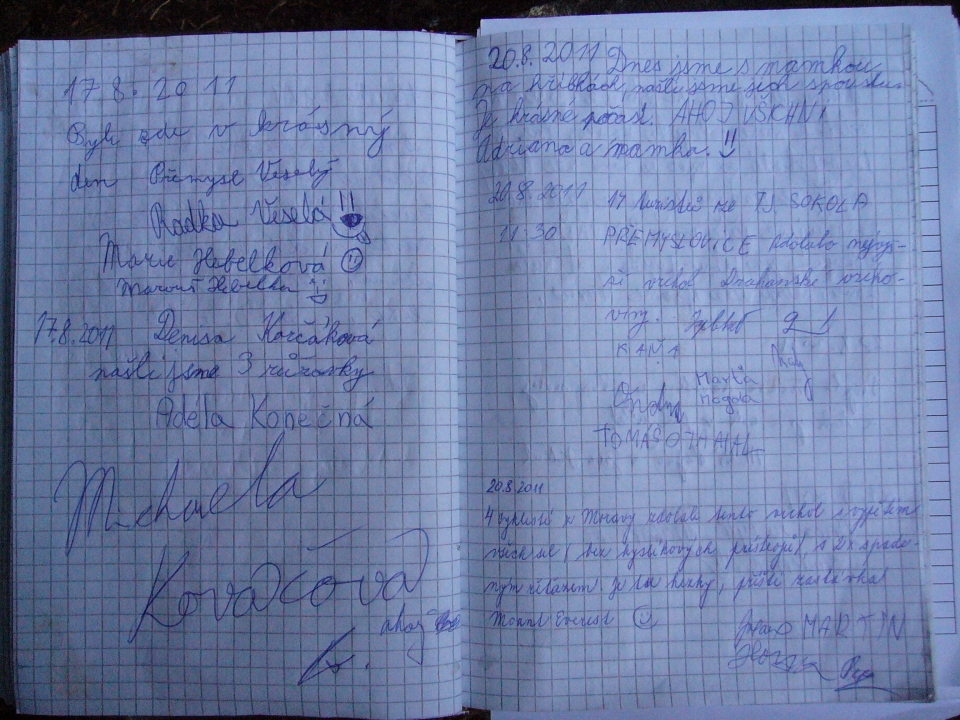 17.8.2011
Byli zde v krásný
den Přemysl Veselý
Radka Veselá
Marie Hebelková
Marcus Hebelka
17.8.2011 Denisa Horčáková
našli jsme 3 růžovky
Adéla Konečná
Michaela
Kovačová
ahoj
20.8.2011 Dnes jsme s mamkou
na hříbkách, našli jsme jich spoustu.
Je krásné počasí. AHOJ UŠKANI
Adriana a mamka.
20.8.2011 17 turistů ze TJ SOKOLA
11:30 PŘEMYSLOVICE zdolalo nejvyš-
ší vrchol Drahanské vrcho-
viny.
KAŇA
Marta
Magda
Ondra
TOMÁŠ
20.8.2011
4 cyklisté z Moravy zdolali tento vrchol s vypětím
všech sil (bez kyslíkových přístrojů) a 2x spade-
ným řetězem. Je tu hezky, příští zastávka
Mount Everest
MARTIN